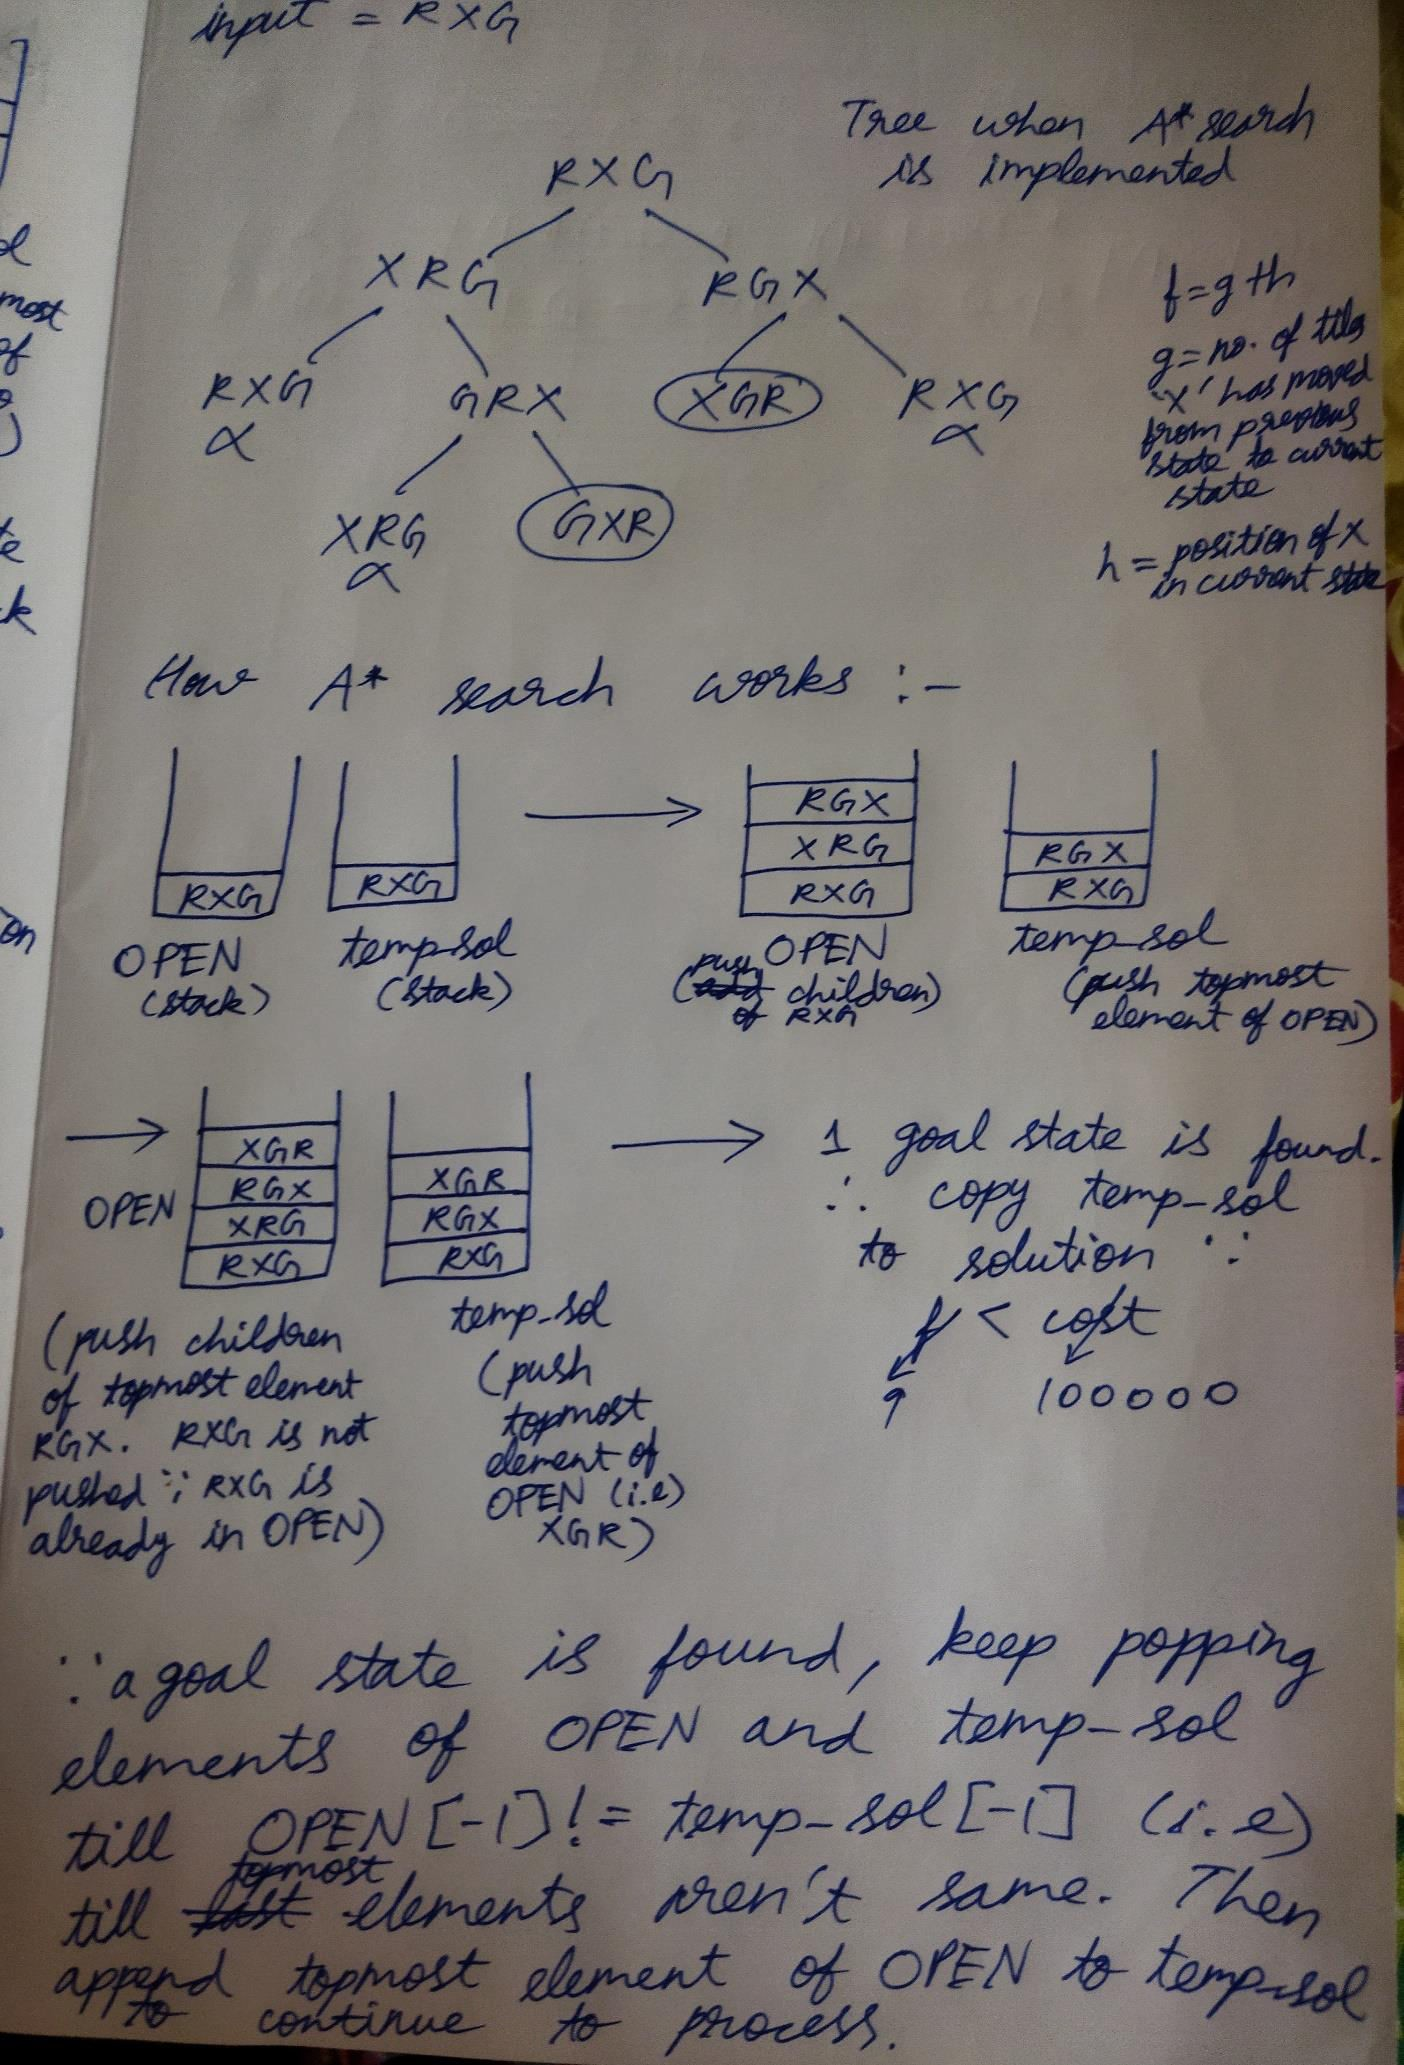 input = RXG
Tree when A* search
is implemented
RXG
XRG RGX
RXG GRX XGR RXG
α α
XRG GXR
α
f = g + h
g = no. of tiles
'X' has moved
from previous
state to current
state
h = position of X
in current state
How A* search works :-
RXG
OPEN
(stack)
RXG
temp_sol
(stack)
RGX
XRG
RXG
OPEN
(push children)
of RXG
RGX
RXG
temp_sol
(push topmost
element of OPEN)
OPEN
XGR
RGX
XRG
RXG
(push children
of topmost element
RGX. RXG is not
pushed ∵ RXG is
already in OPEN)
XGR
RGX
RXG
temp_sol
(push
topmost
element of
OPEN (i.e)
XGR)
1 goal state is found.
∴ copy temp_sol
to solution ∵
f < cost
9 100000
∵ a goal state is found, keep popping
elements of OPEN and temp_sol
till OPEN[-1] != temp_sol[-1] (i.e)
till topmost elements aren't same. Then
append topmost element of OPEN to temp_sol
to continue to process.
d
most
of
te
ck
on